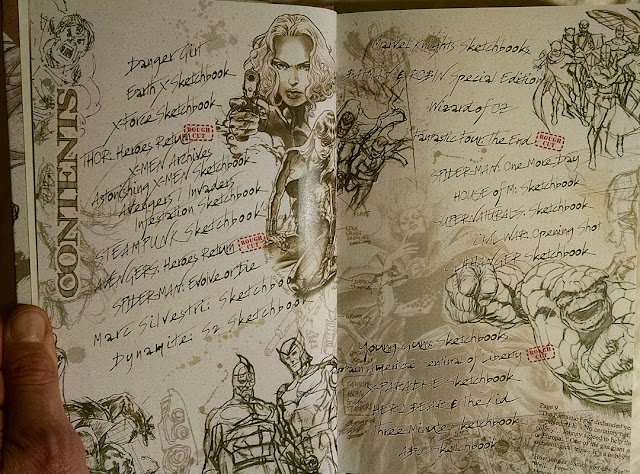 CONTENTS
Danger Girl
Earth X Sketchbook
X-Force Sketchbook
THOR: Heroes Return
ROUGH CUT
X-MEN Archives
Astonishing X-MEN Sketchbook
Avengers / Invaders
Infestation Sketchbook
STEAMPUNK Sketchbook
AVENGERS: Heroes Return
ROUGH CUT
SPIDER-MAN: Evolve or Die
Marc Silvestri: Sketchbook
Dynamite: Sketchbook
Marvel Knights Sketchbooks
BATMAN & ROBIN Special Edition
Wizard of OZ
Fantastic Four: The End
ROUGH CUT
SPIDER-MAN: One More Day
HOUSE of M: Sketchbook
SUPERNATURALS: Sketchbook
CIVIL WAR: Opening Shot
Sketchbook
Young Guns Sketchbooks
Captain America: Sentinel of Liberty
ROUGH CUT
Sketchbook
HERO BEAR & The Kid
Three Minute Sketchbook
Sketchbook
Page 9